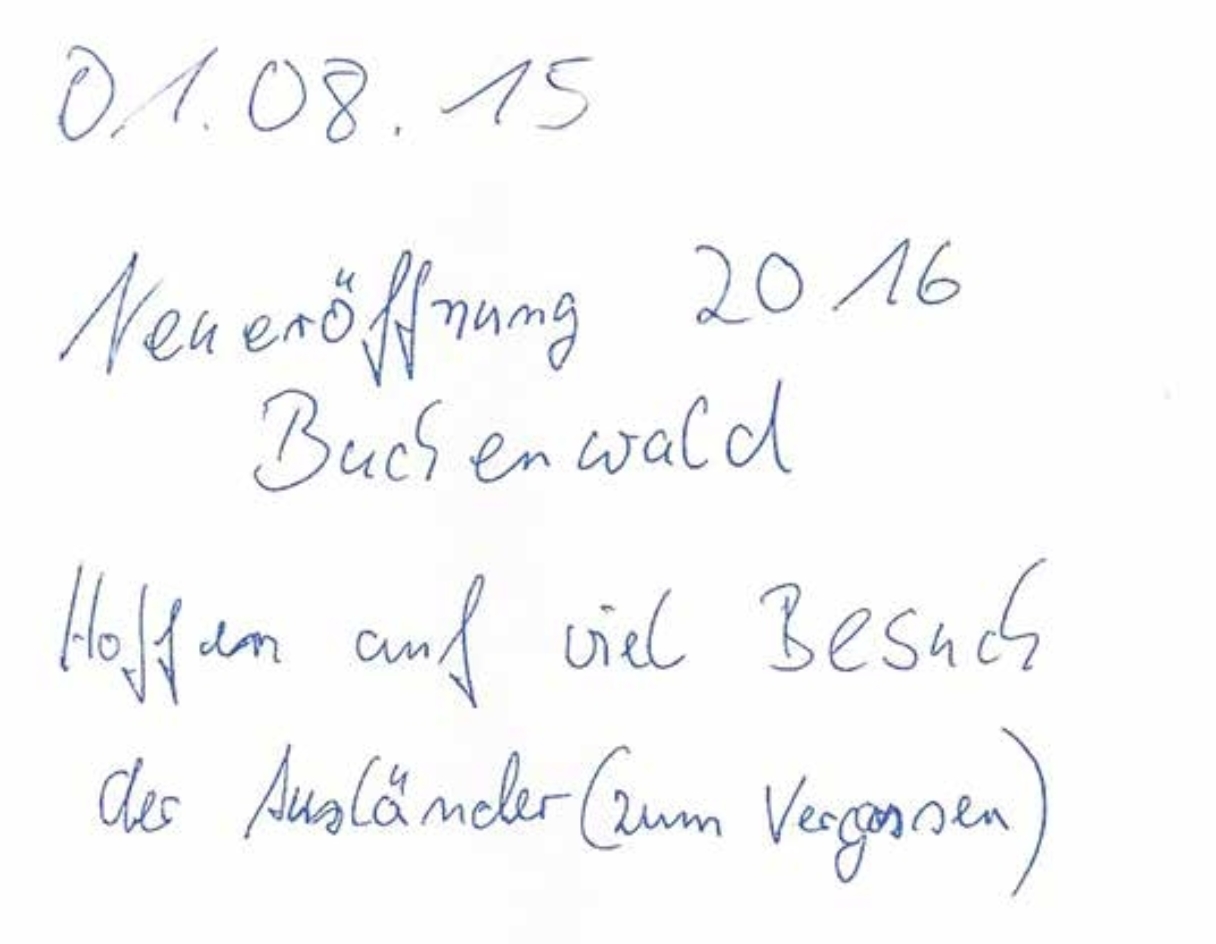 01.08.15
Neueröffnung 2016
Buchenwald
Hoffen auf viel Besuch
der Ausländer (zum Vergassen)